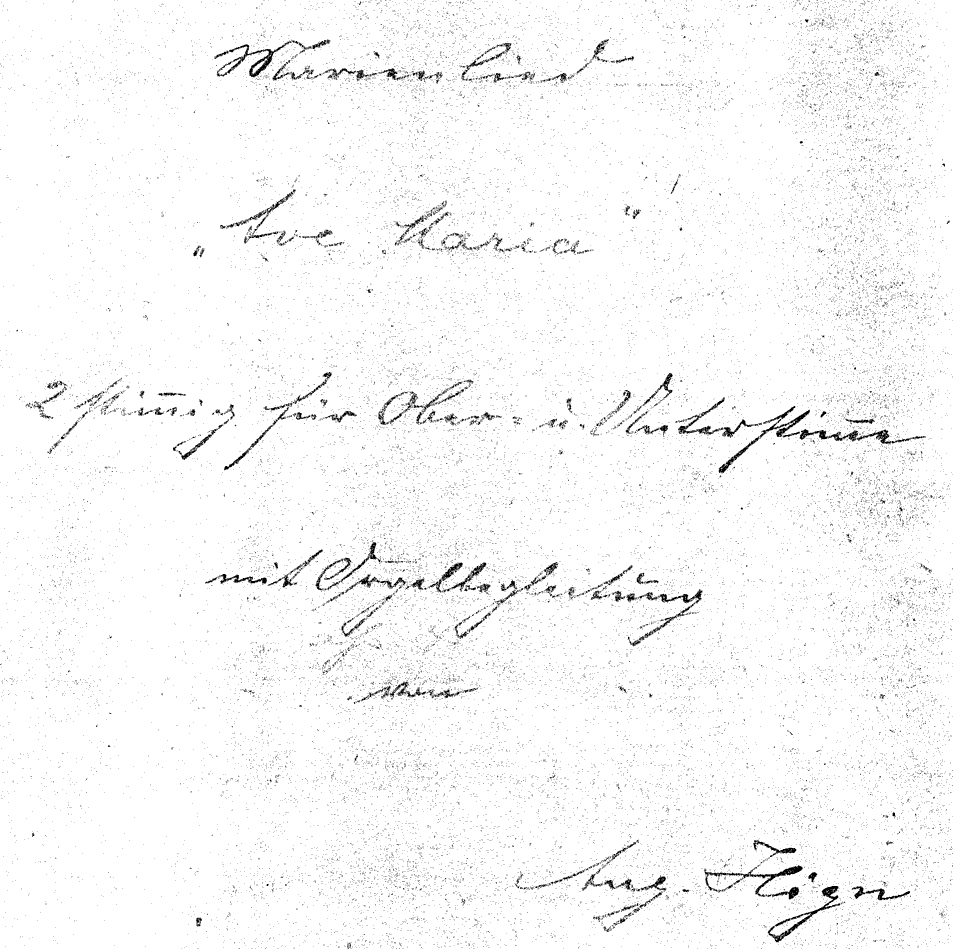 Marienlied
„Ave Maria“!
2 stim̄ig für Ober- u. Unterstim̄e
mit Orgelbegleitung
von
Aug. Högn